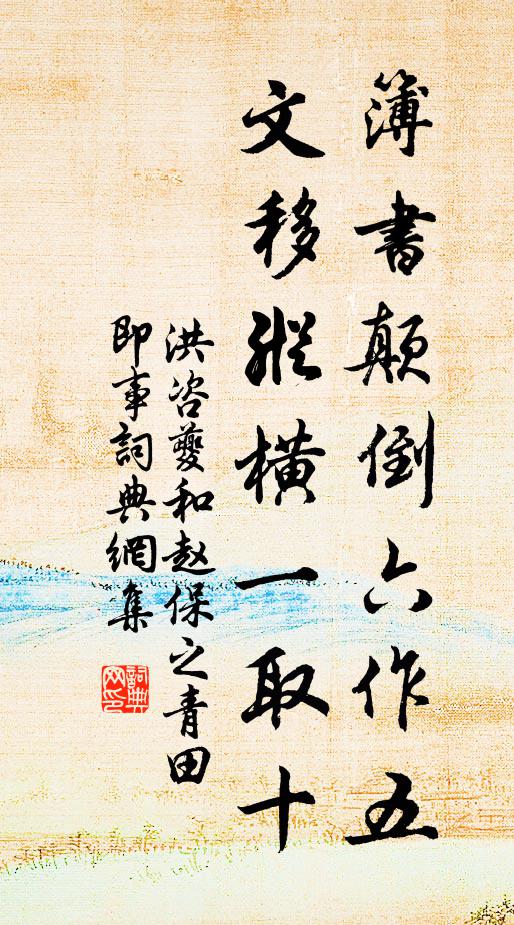 簿書顛倒六作五
文移縱橫一取十
洪咨夔和赵保之青田
即事詞典網集
詞典
网印